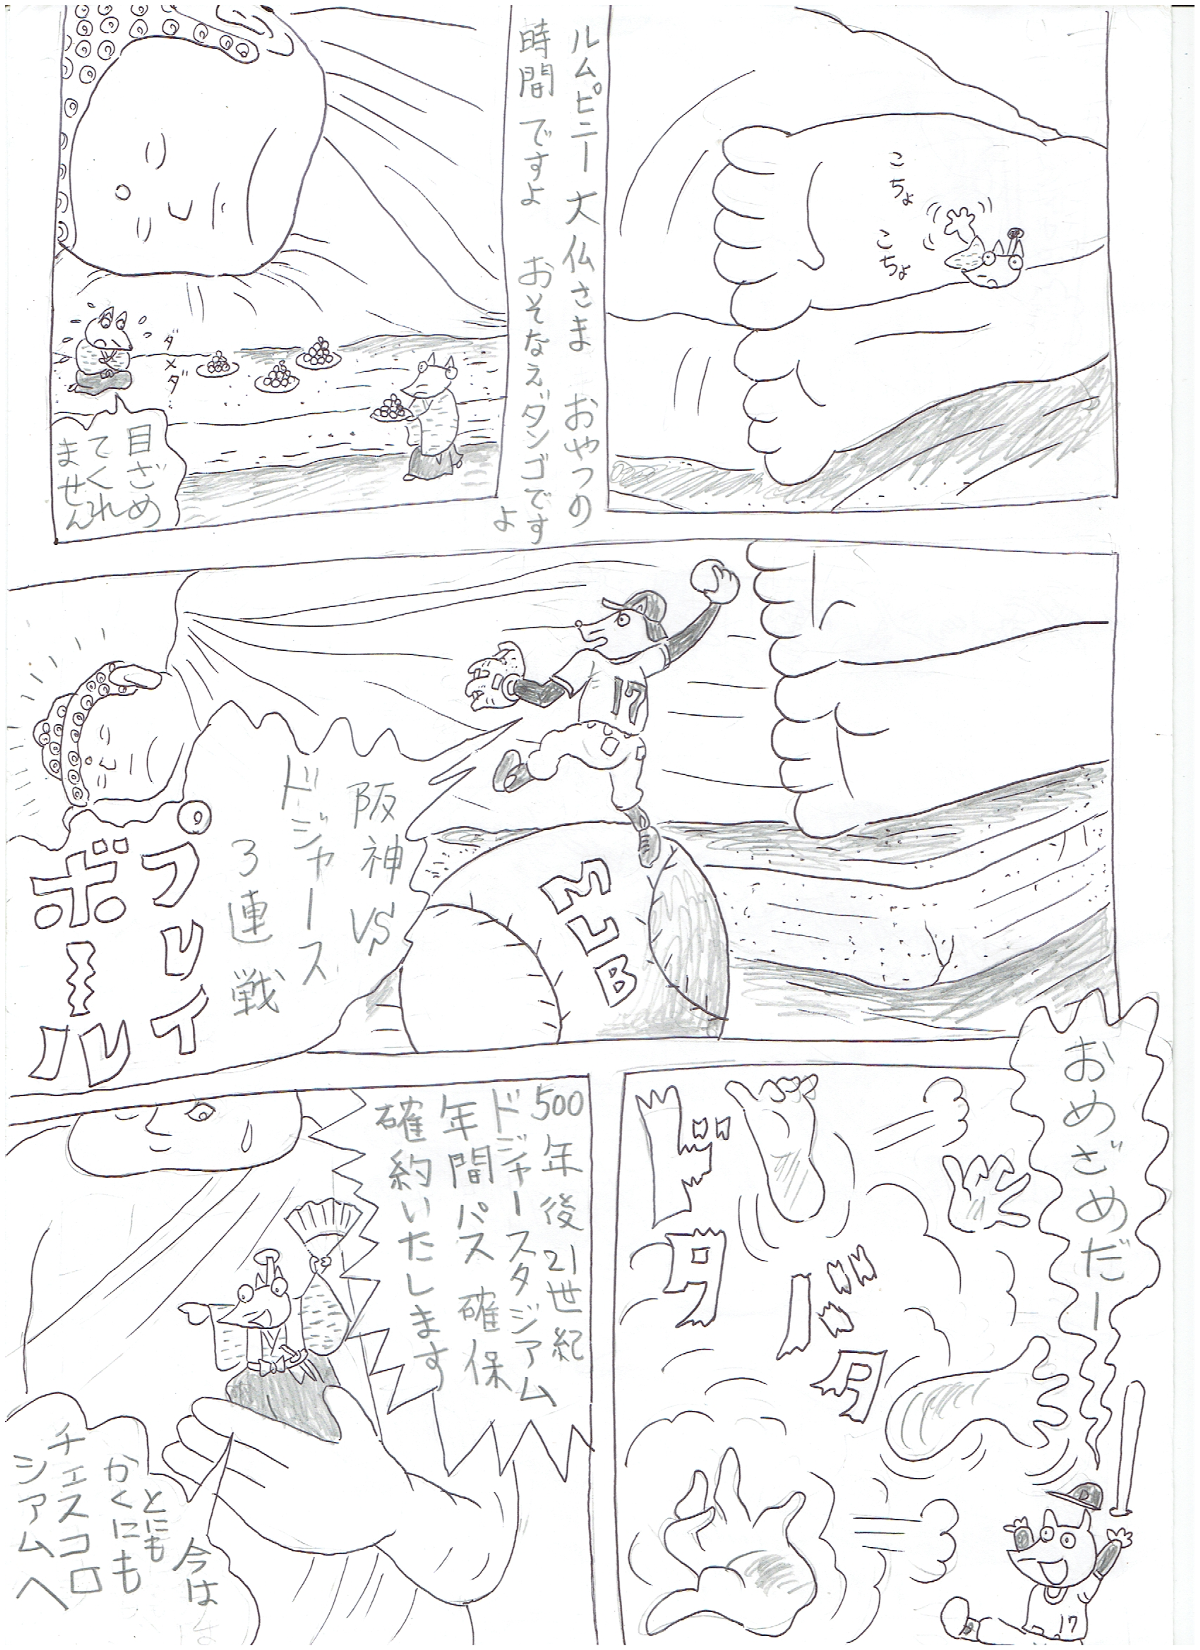 こちょ
こちょ
ルムピニー大仏さま おやつの
時間ですよ おそなえダンゴです
よ
ダメダ
目ざめ
てくれ
ません
17
MLB
阪神VS
ドジャース
3連戦
プレイ
ボール
おめざめだー
ドタ
バタ
D
17
500年後21世紀
ドジャースタジアム
年間パス確保
確約いたします
今は
とにも
かくにも
チェスコロ
シアムへ